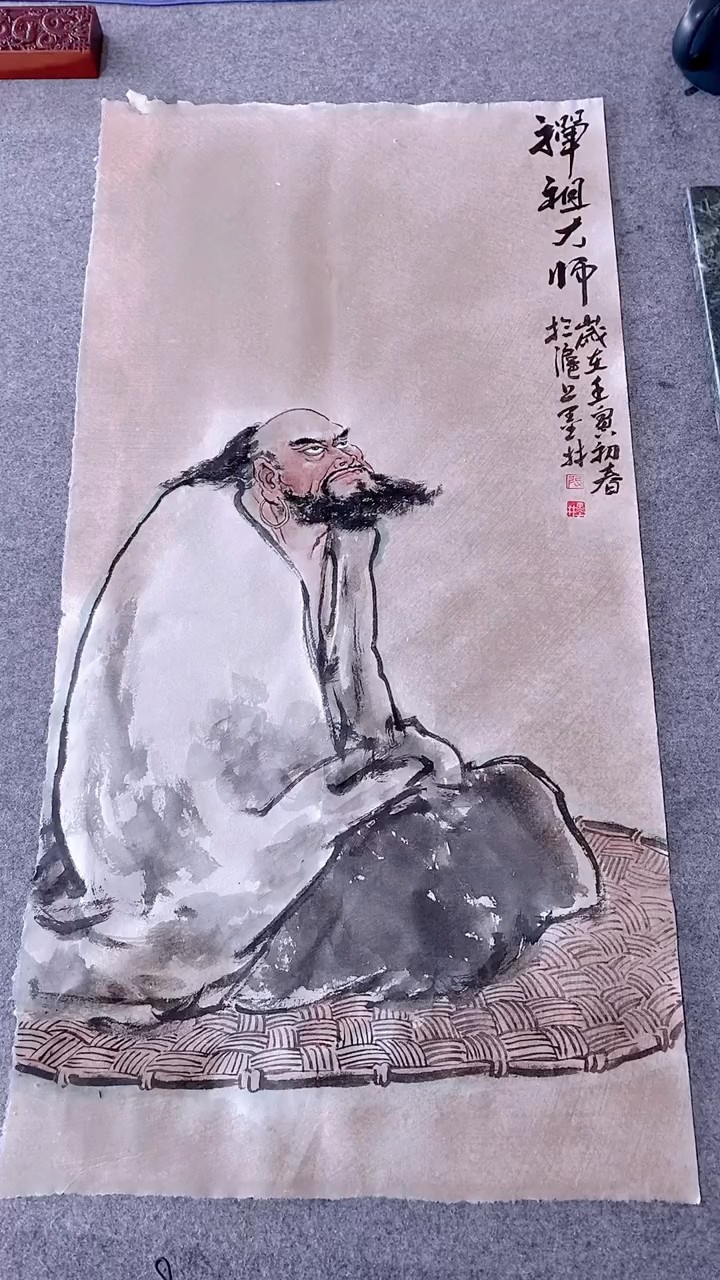 禪祖大师
歲在壬寅初春
於滬上墨林